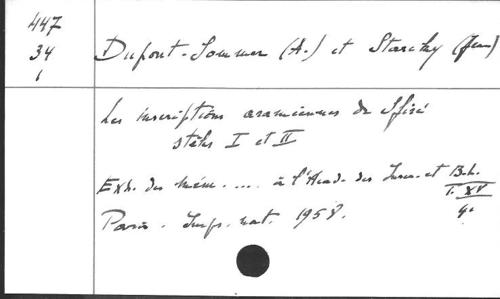 447
34
1
Dupont-Sommer (A.) et Starcky (Jean)
Les inscriptions araméennes de Sfiré
stèles I et II
Ext. des Mém. .... à l'Acad. des Inscr. et B.L.
T. XV
Paris. Imp. nat. 1958.
4°